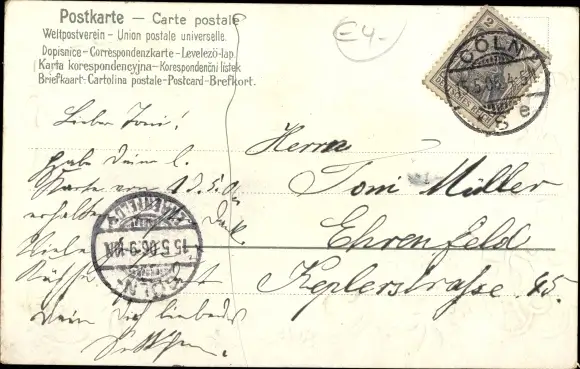 Postkarte — Carte postale
Weltpostverein – Union postale universelle.
Dopisnice – Correspondenzkarte – Levelező-lap.
Karta korespondencyjna – Korespondenční lístek
Briefkaart – Cartolina postale – Postcard – Brefkort.
E4-
2
CÖLN
5.06.4-5
8 e
Lieber Toni!
Habe Deine l.
Karte vom
erhalten
Dank.
Viele
CÖLN-
EHRENFELD
15.5.06.9-10N
Dein Dich liebendes
Herrn
Toni Müller
Ehrenfeld
Keplerstrasse 45.